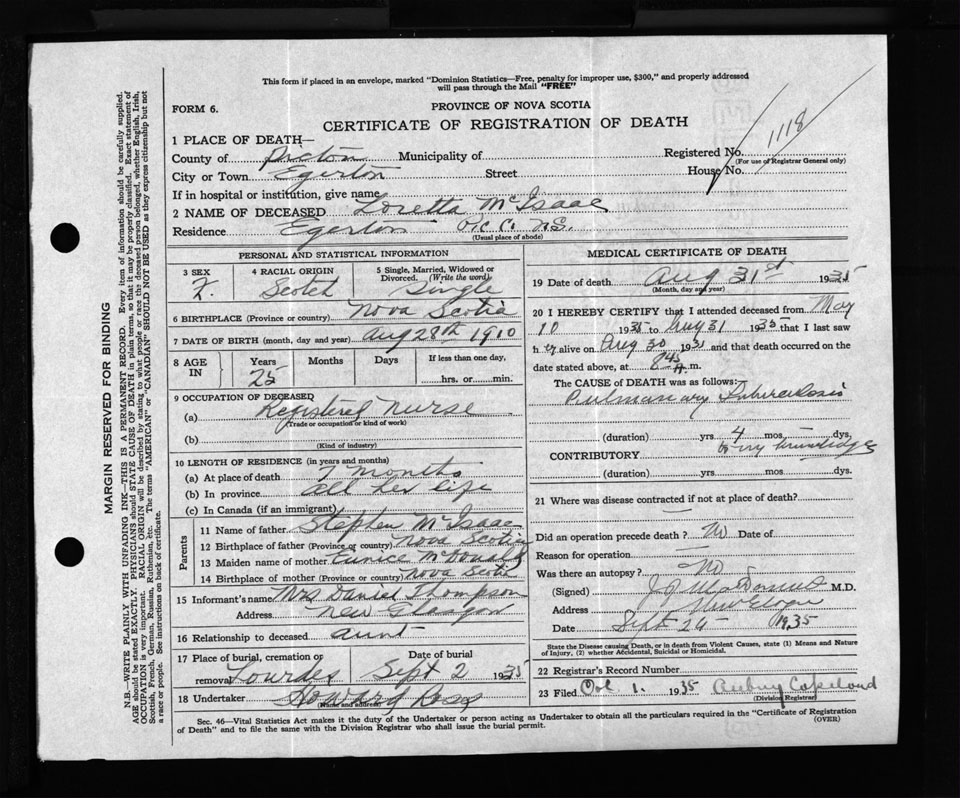 This form if placed in an envelope, marked "Dominion Statistics—Free, penalty for improper use, $300," and properly addressed
will pass through the Mail "FREE"
FORM 6.
PROVINCE OF NOVA SCOTIA
CERTIFICATE OF REGISTRATION OF DEATH
1118
1 PLACE OF DEATH—
County of Pictou Municipality of Registered No.
(For use of Registrar General only)
City or Town Egerton Street House No.
If in hospital or institution, give name
2 NAME OF DECEASED Loretta McIsaac
Residence Egerton Pic. C. N.S.
(Usual place of abode)
PERSONAL AND STATISTICAL INFORMATION
3 SEX F. 4 RACIAL ORIGIN Scotch 5 Single, Married, Widowed or Divorced. (Write the word) Single
6 BIRTHPLACE (Province or country) Nova Scotia
7 DATE OF BIRTH (month, day and year) Aug 28th 1910
8 AGE IN Years 25 Months Days If less than one day, hrs. or min.
9 OCCUPATION OF DECEASED
(a) Registered Nurse
(Trade or occupation or kind of work)
(b)
(Kind of industry)
10 LENGTH OF RESIDENCE (in years and months)
(a) At place of death 7 months
(b) In province all her life
(c) In Canada (if an immigrant)
Parents
11 Name of father Stephen McIsaac
12 Birthplace of father (Province or country) Nova Scotia
13 Maiden name of mother Eunice McDonald
14 Birthplace of mother (Province or country) Nova Scotia
15 Informant's name Mrs Daniel Thompson
Address New Glasgow
16 Relationship to deceased aunt
17 Place of burial, cremation or removal Lourdes Date of burial Sept 2 1935
18 Undertaker Howard Ross
(Name and address)
MEDICAL CERTIFICATE OF DEATH
19 Date of death Aug 31st 1935
(Month, day and year)
20 I HEREBY CERTIFY that I attended deceased from May
10 1935 to Aug 31 1935 that I last saw
h er alive on Aug 30 1931 and that death occurred on the
date stated above, at 8 45 A. m.
The CAUSE of DEATH was as follows:—
Pulmonary Tuberculosis
(duration) yrs 4 mos dys.
to my knowledge
CONTRIBUTORY
(duration) yrs mos dys.
21 Where was disease contracted if not at place of death?
Did an operation precede death? No Date of
Reason for operation
Was there an autopsy? No
(Signed) M.D.
Address New Glasgow
Date Sept 24 1935
State the Disease causing Death, or in death from Violent Causes, state (1) Means and Nature
of Injury, (2) whether Accidental, Suicidal or Homicidal.
22 Registrar's Record Number
23 Filed Oct 1. 1935 Aubrey Copeland
(Division Registrar)
Sec. 46—Vital Statistics Act makes it the duty of the Undertaker or person acting as Undertaker to obtain all the particulars required in the "Certificate of Registration
of Death" and to file the same with the Division Registrar who shall issue the burial permit.
(OVER)
MARGIN RESERVED FOR BINDING
N.B.—WRITE PLAINLY WITH UNFADING INK—THIS IS A PERMANENT RECORD. Every item of information should be carefully supplied.
AGE should be stated EXACTLY. PHYSICIANS should STATE CAUSE OF DEATH in plain terms, so that it may be properly classified. Exact statement of
OCCUPATION is very important. RACIAL ORIGIN will be described by stating to what people or race the deceased person belonged, whether English, Irish,
Scottish, French, German, Russian, Ruthenian, etc. The terms "AMERICAN" or "CANADIAN" SHOULD NOT BE USED as they express citizenship but not
a race or people. See instructions on back of certificate.